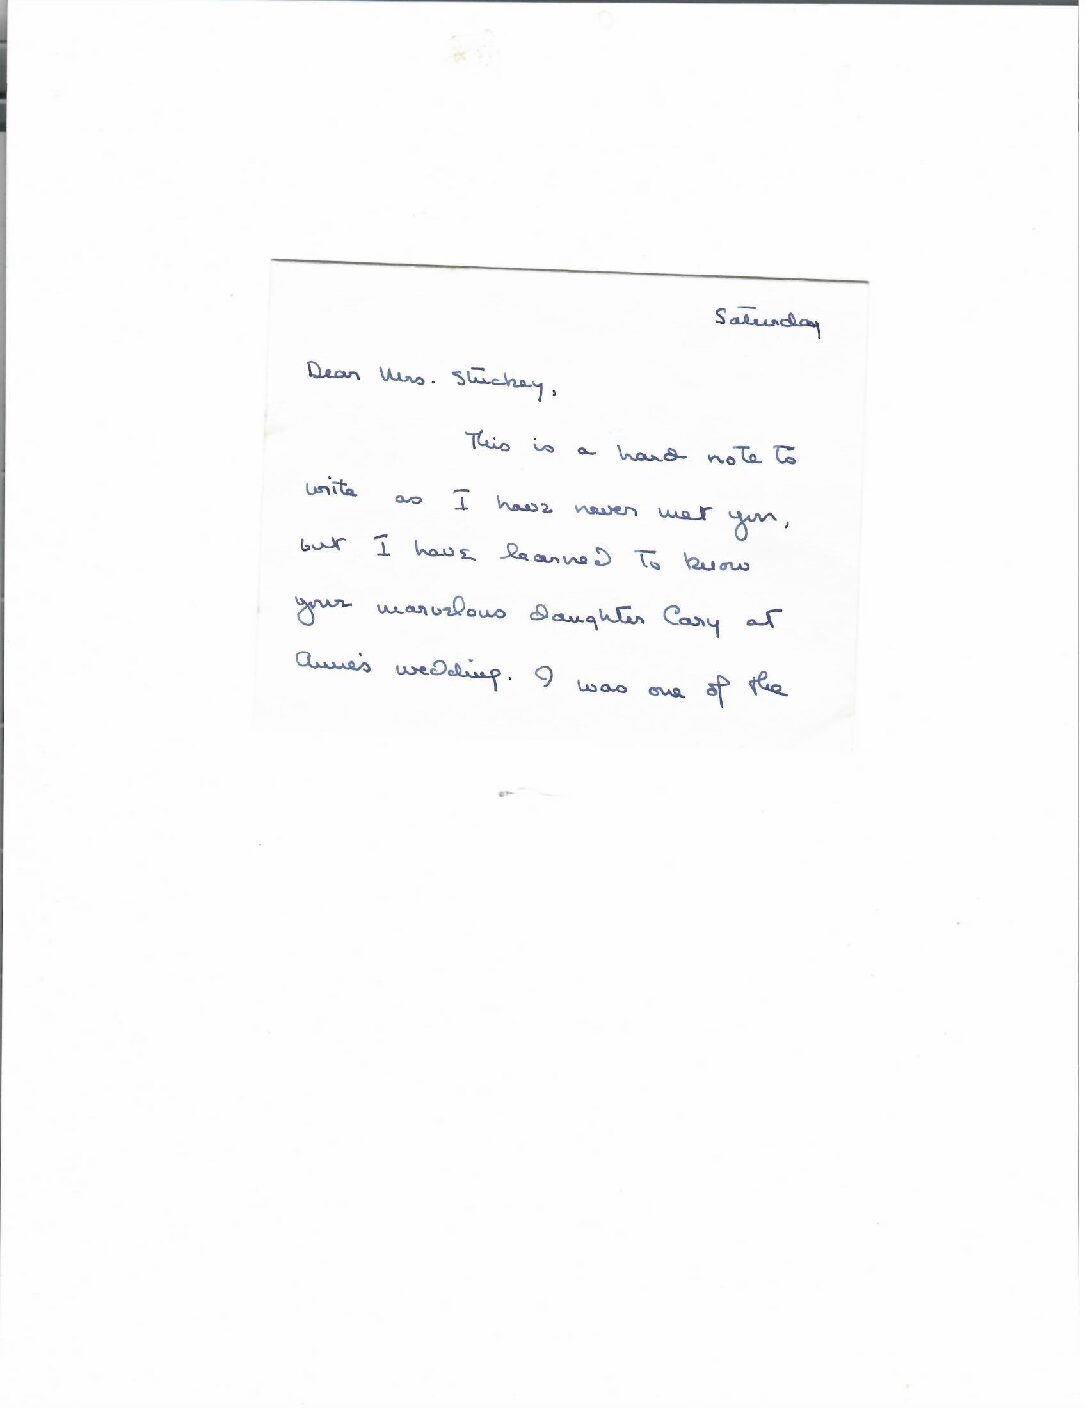 Saturday
Dear Mrs. Stuckey,
This is a hard note to
write as I have never met you,
but I have learned to know
your marvelous daughter Cary at
Anne's wedding. I was one of the